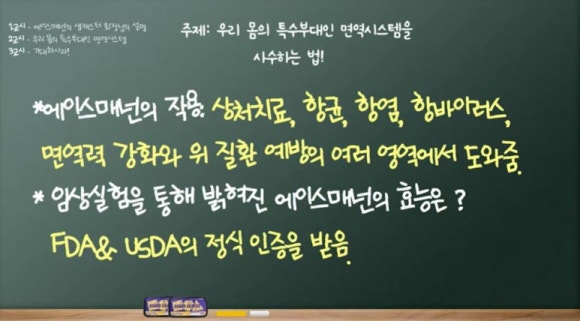 1교시 - 에이스매넌의 생게스터 회장님의 설명
2교시 - 우리 몸의 특수부대인 면역시스템
3교시 - 기대하시라!
주제: 우리 몸의 특수부대인 면역시스템을
사수하는 법!
*에이스매넌의 작용: 상처치료, 항균, 항염, 항바이러스,
면역력 강화와 위 질환 예방의 여러 영역에서 도와줌.
* 임상실험을 통해 밝혀진 에이스매넌의 효능은 ?
FDA& USDA의 정식 인증을 받음.